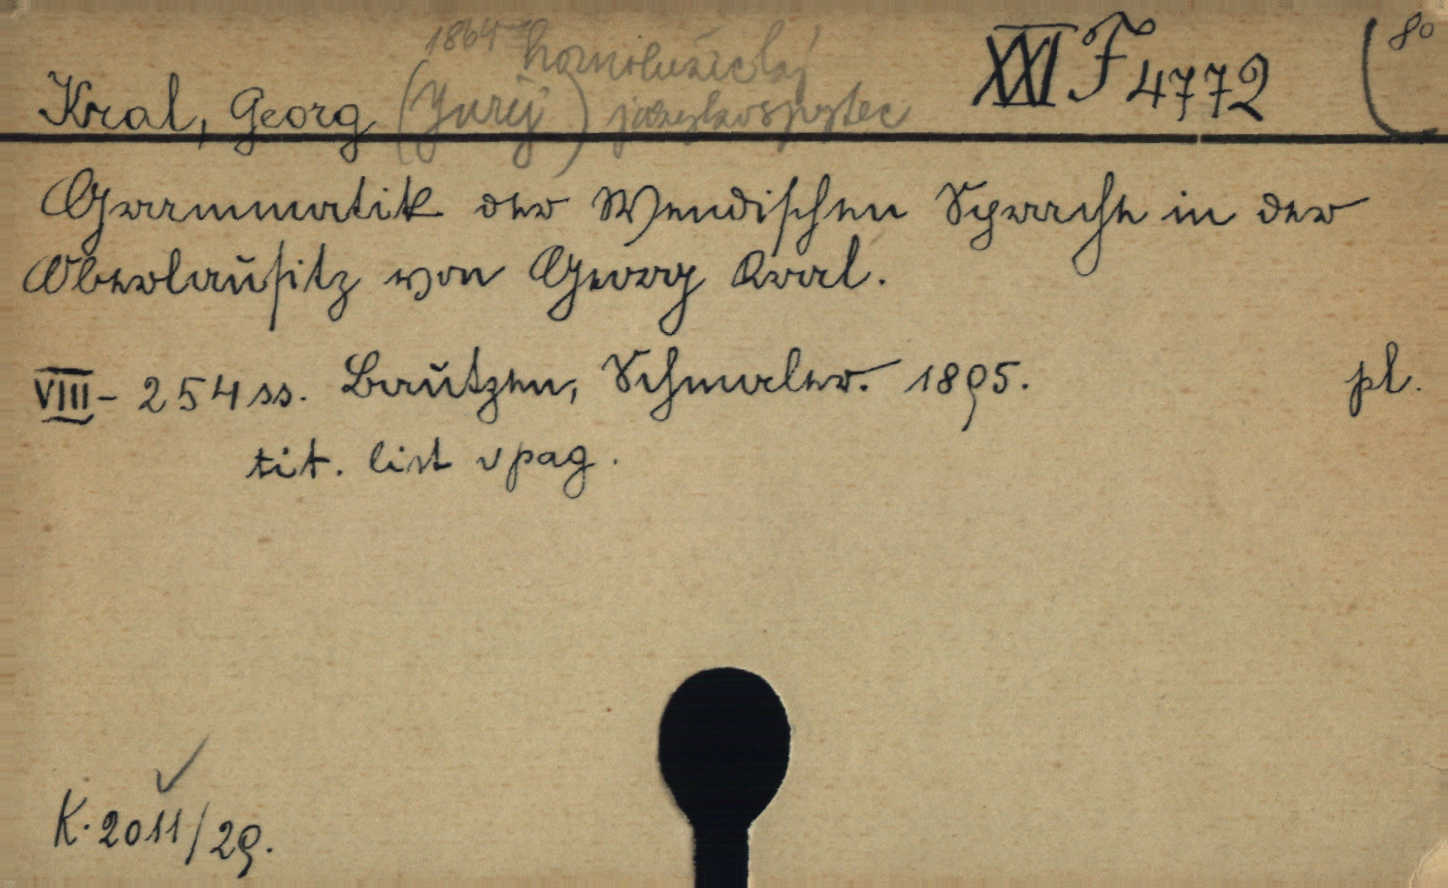 1864 hornolužický XXI F 4772 (8o
Kral, Georg (Jurij) jazykospytec
Grammatik der Wendischen Sprache in der
Oberlausitz von Georg Kral.
VIII - 254 ss. Bautzen, Schmaler. 1895. pl.
tit. list vpag.
K. 2011/29.